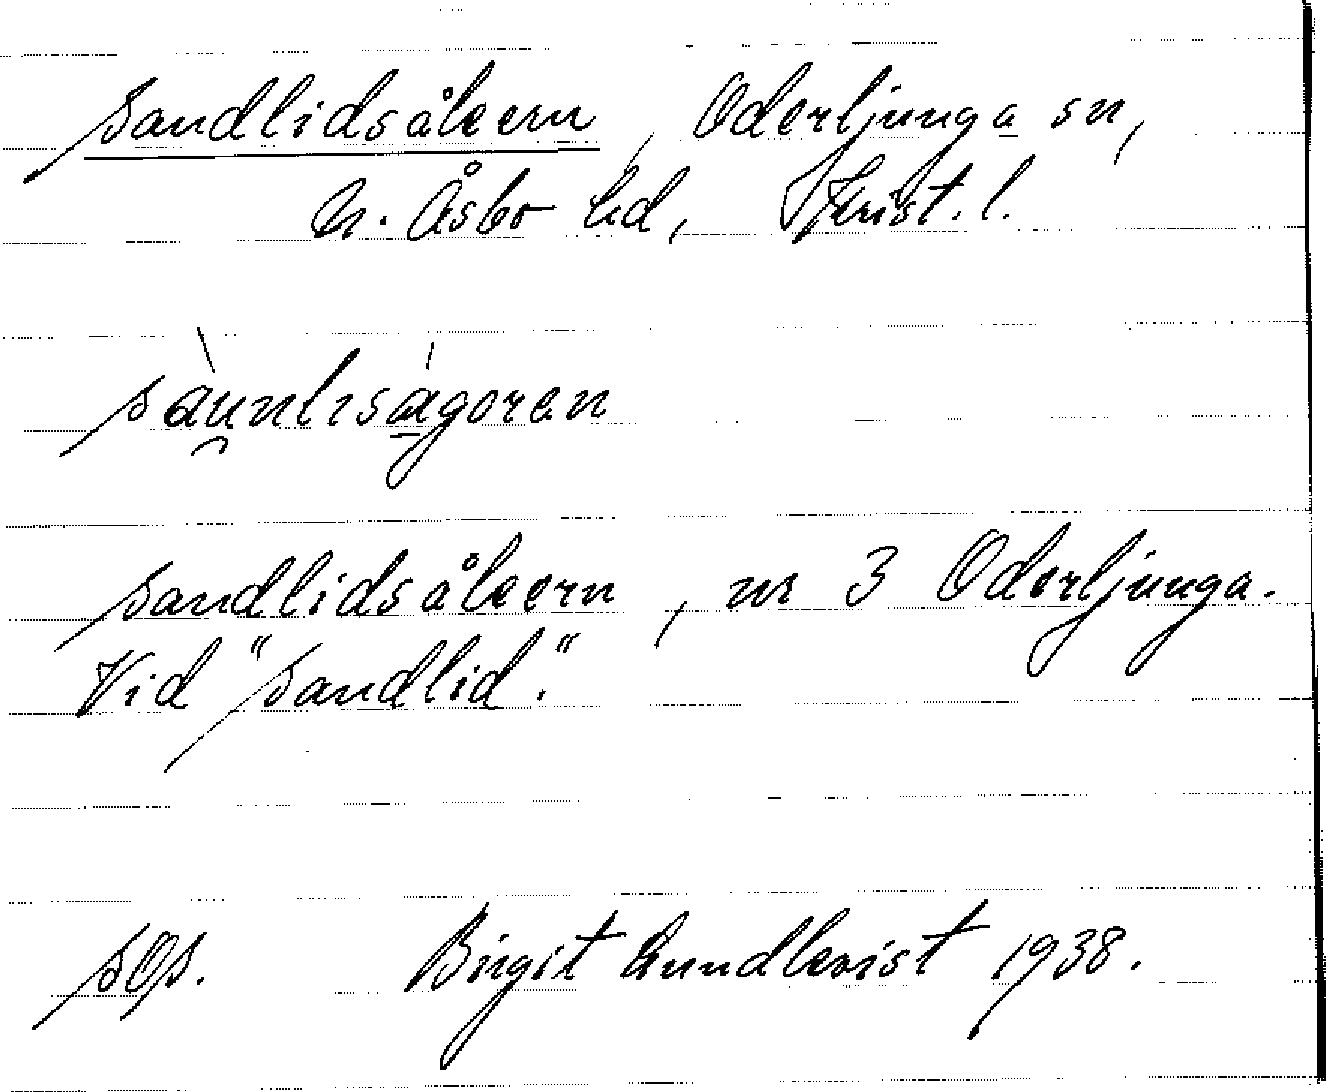 Sandlidsåkern, Oderljunga sn,
N. Åsbo hd, Krist. l.
sàu̯nliságoren
Sandlidsåkern, nr 3 Oderljunga.
Vid "Sandlid."
Birgit Lundkvist 1938.